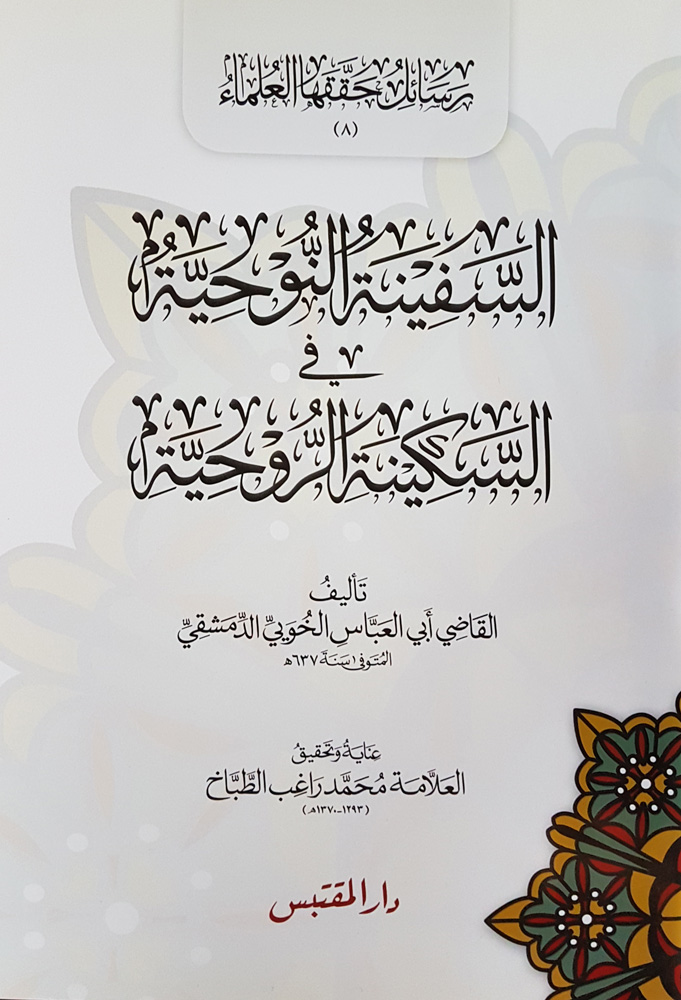 رَسَائِلُ حَقَّقَهَا العُلَمَاءُ
(٨)
السَّفِينَةُ النُّوْحِيَّةُ
في
السَّكِينَةِ الرُّوْحِيَّةِ
تَأليفُ
القَاضِي أَبي العَبَّاسِ الخُوَيِيِّ الدِّمَشْقِيِّ
المُتَوفى سَنَة ٦٣٧هـ
عِنَايَةُ وَتَحْقِيقُ
العَلَّامَة مُحَمَّد رَاغِب الطَّبَّاخ
(١٢٩٣-١٣٧٠هـ)
دار المقتبس